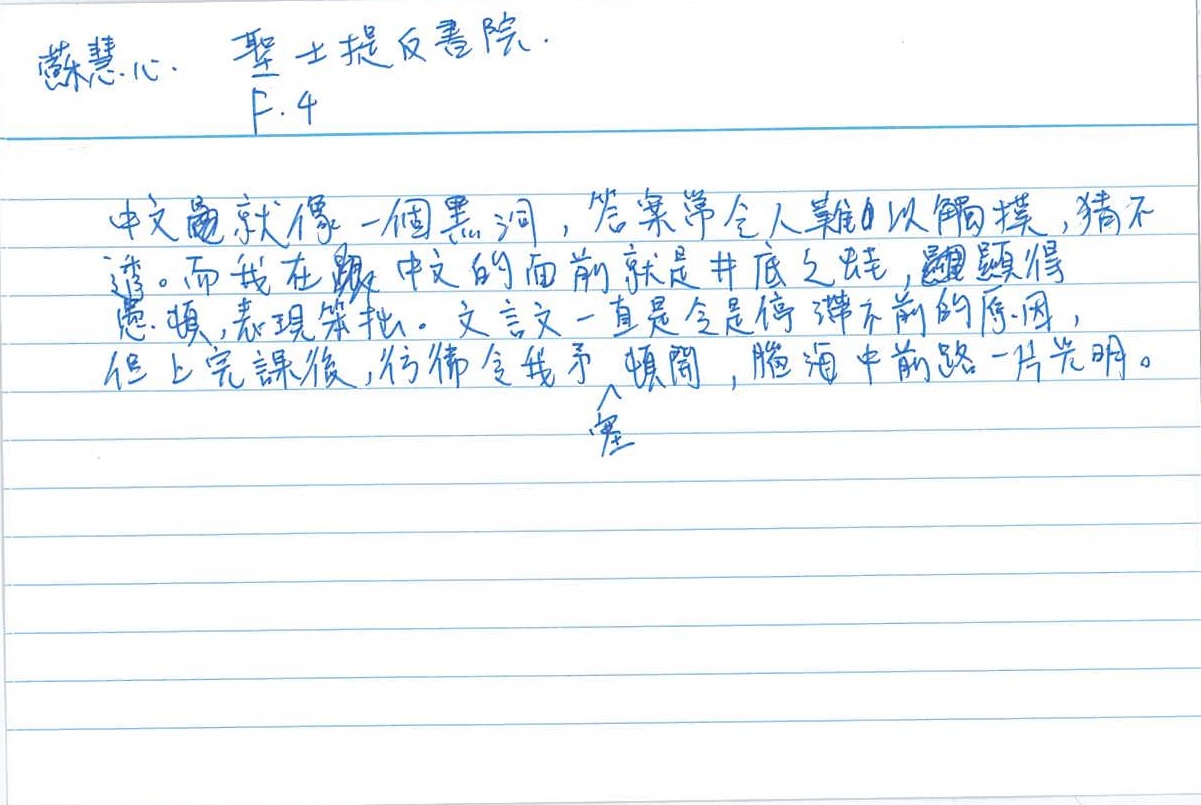 蘇慧心. 聖士提反書院.
F.4
中文就像一個黑洞，答案常令人難以觸摸，猜不
透。而我在中文的面前就是井底之蛙，顯得
愚頓，表現笨拙。文言文一直是令是停滯不前的原因，
但上完課後，彷彿令我矛塞頓開，腦海中前路一片光明。